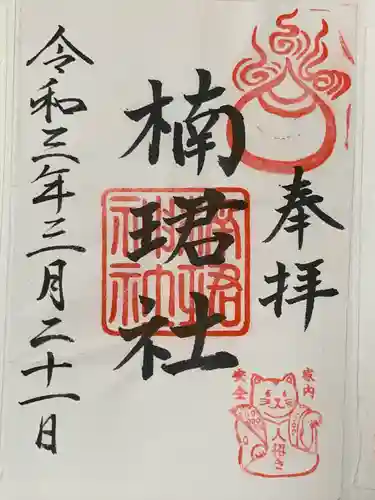 奉拝
楠珺社
令和三年三月二十一日
家内
安全
人招き